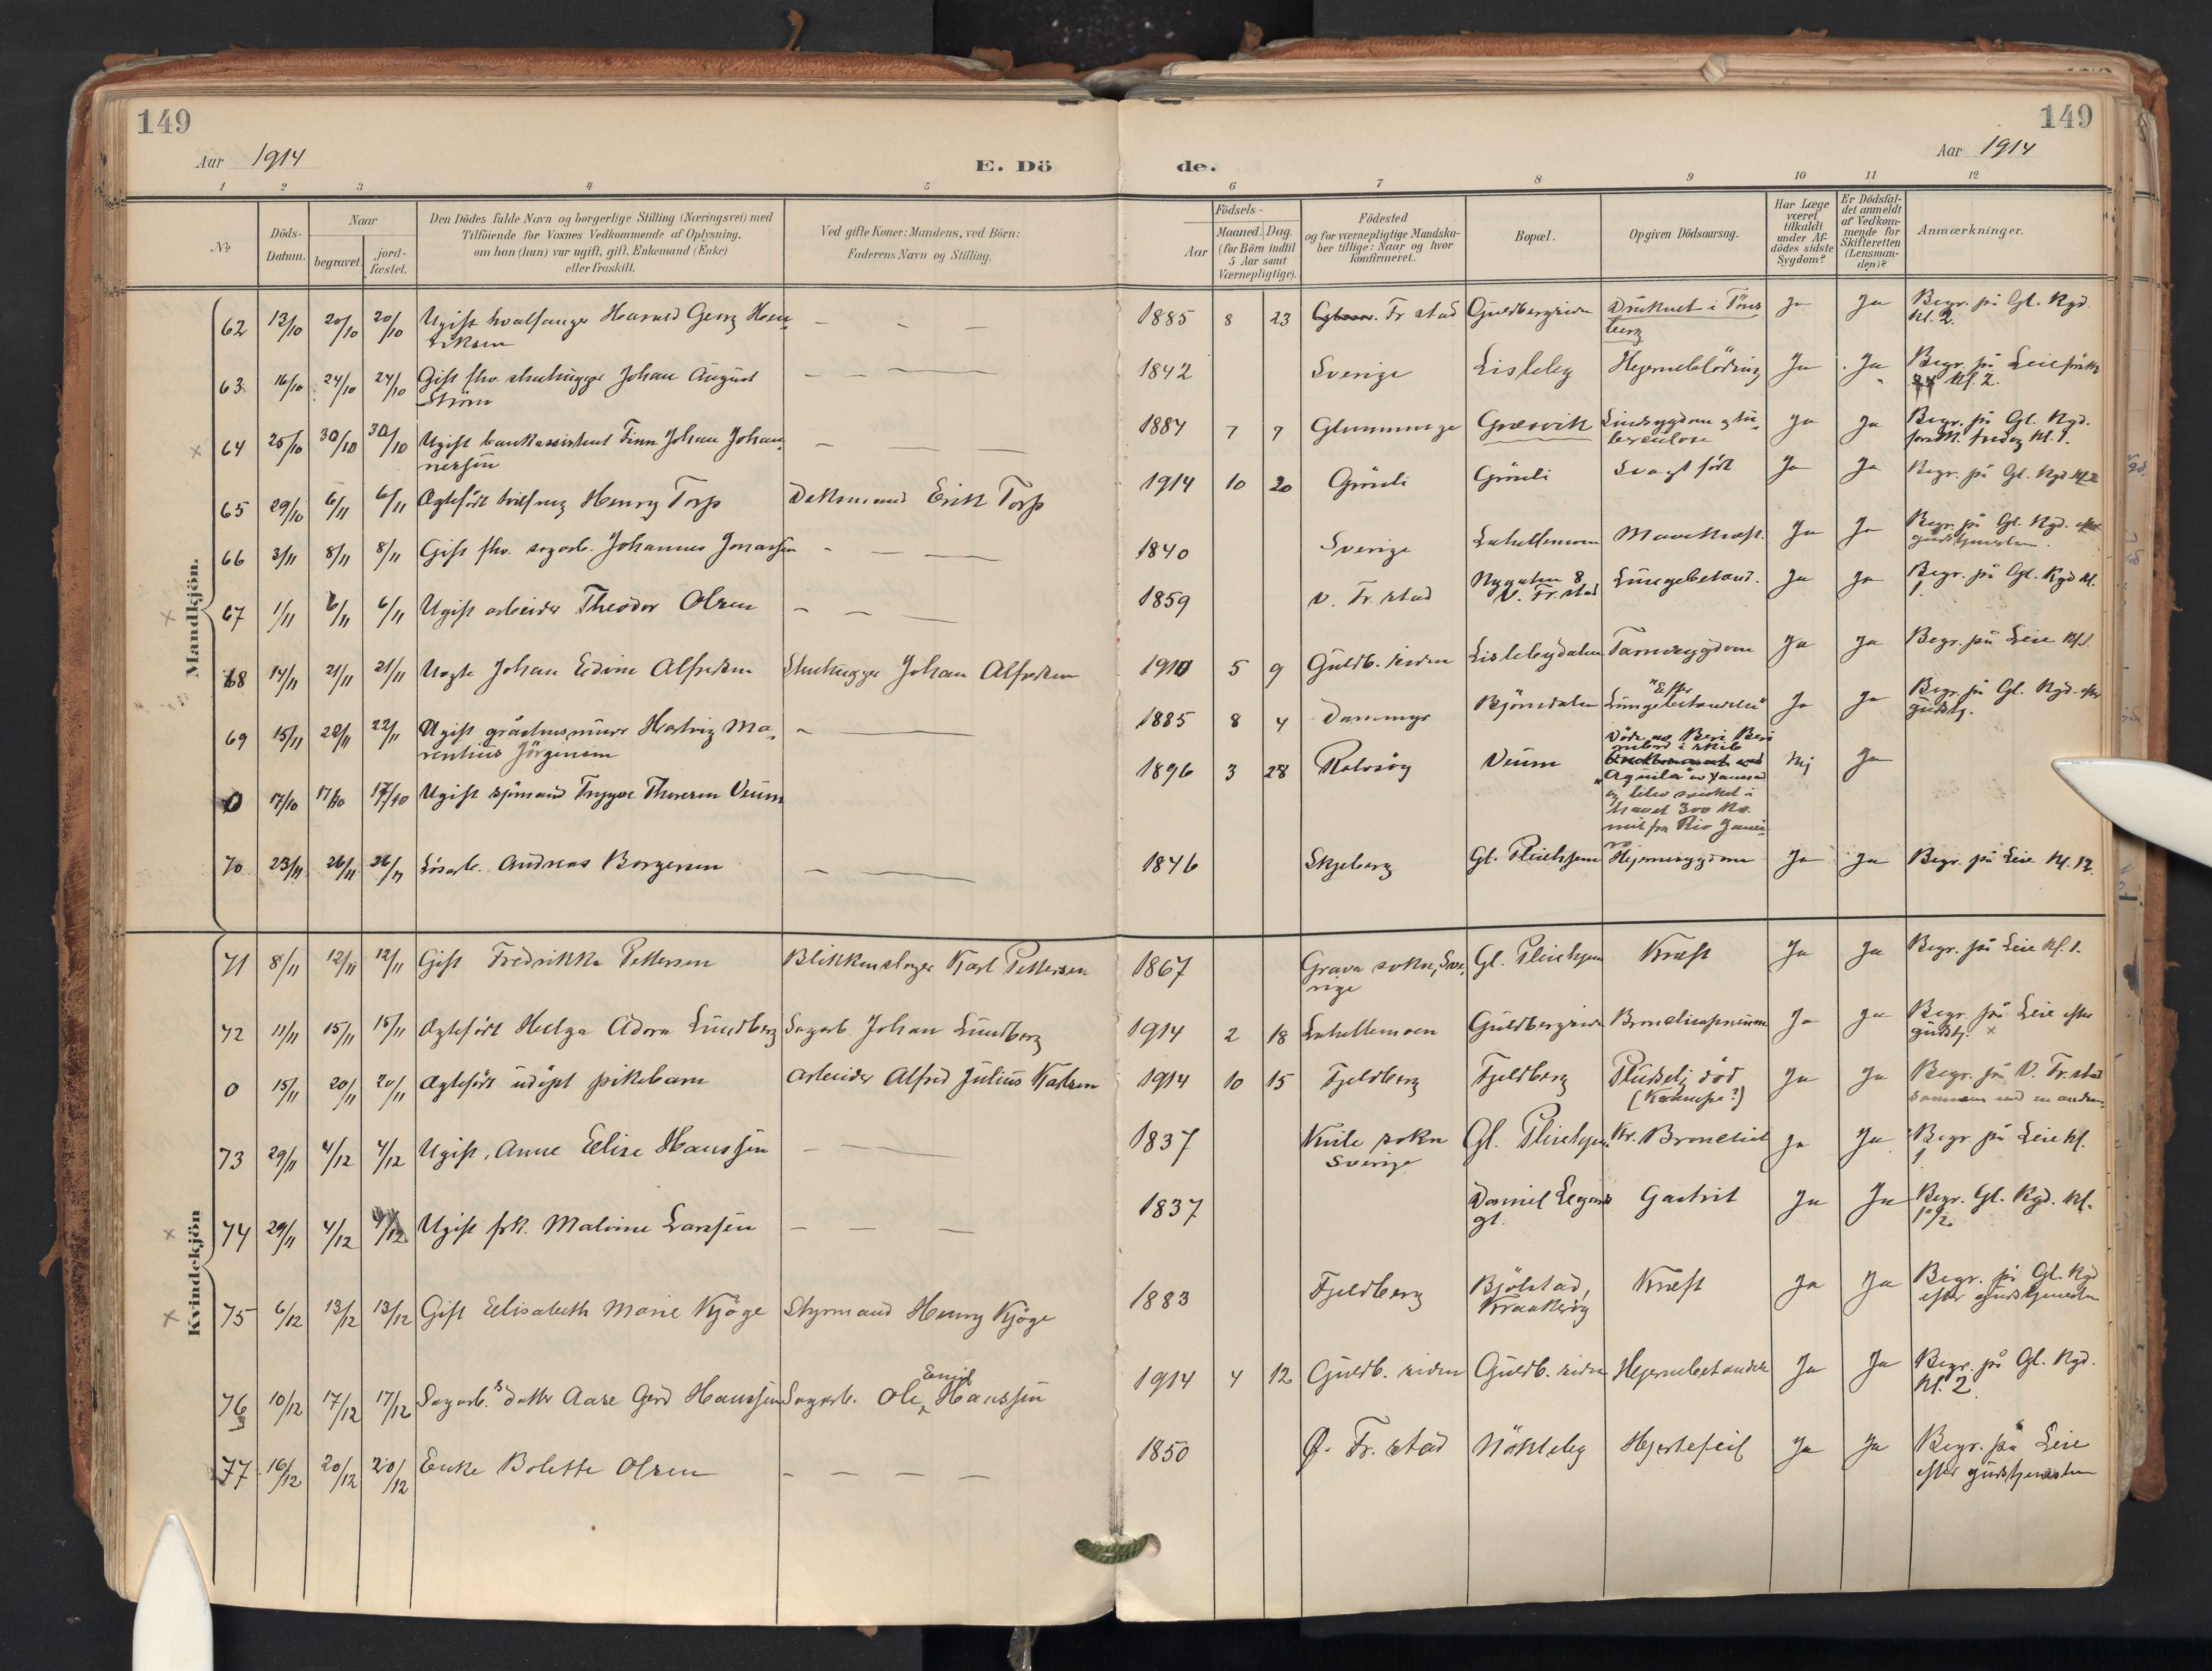 149
149
Aar 1914
E. Dö
de.
Aar 1914
1 2 3 4 5 6 7 8 9 10 11 12
No
Döds-Datum.
Naar
begravet.
jord-fæstet.
Den Dödes fulde Navn og borgerlige Stilling (Næringsvei) med
Tilföiende for Voxnes Vedkommende af Oplysning.
om han (hun) var ugift, gift. Enkemand (Enke)
eller fraskilt.
Ved gifte Koner: Mandens, ved Börn:
Faderens Navn og Stilling.
Födsels-
Aar
Maaned. Dag.
(for Börn indtil
5 Aar samt
Værnepligtige).
Födested
og for værnepligtige Mandska-
ber tillige: Naar og hvor
konfirmeret.
Bopæl.
Opgiven Dödsaarsag.
Har Læge
været
tilkaldt
under Af-
dödes sidste
Sygdom?
Er Dödsfal-
det anmeldt
af Vedkom-
mende for
Skifteretten
(Lensman-
den)?
Anmærkninger.
Mandkjön.
62 13/10 20/10 20/10 Ugift hvalfanger Harald Georg Hen- — — — 1885 8 23 Fr stad Guldbergsiden Druknet i Töns Ja Ja Begr. på Gl. Kgd.
riksen berg kl. 2.
63 16/10 24/10 24/10 Gift fhv. stenhugger Johan August — — — 1842 Sverige Lisleby Hjerneblödning Ja Ja Begr. på Leie
Ström kl. 2.
64 25/10 30/10 30/10 Ugift bankassistent Finn Johan Johan- — — — 1884 7 7 Glemminge Græsvik Ja Ja Begr. på Gl. Kgd.
nessen fredag kl. 1.
65 29/10 6/11 6/11 Ægtefödt tvilling Henry Torp Erik Torp 1914 10 20 Gründi Gründi Svagt født Ja Ja Begr. på Gl. Kgd kl 2
66 3/11 8/11 8/11 Gift fhv. sagarb. Johannes Jonassen — — — 1840 Sverige Labellemoen Mavekræft. Ja Ja Begr. på Gl. Kgd. efter
gudstjenesten.
67 1/11 6/11 6/11 Ugift arbeider Theodor Olsen — — — 1859 V. Fr. stad Nygaten 8 Lungebetænd. Ja Ja Begr. på Gl. Kgd kl.
V. Fr. stad 1.
68 14/11 21/11 21/11 Johan Edvin Alfredsen Stenhugger Johan Alfredsen 1910 5 9 Guldb. siden Lislebydalen Tarmsygdom Ja Ja Begr. på Leie kl 1.
69 15/11 22/11 22/11 Ugift gråstensmurer Hartvig Ma- — — 1885 8 4 Dammyr Bjørnsdalen "Efter Ja Ja Begr. på Gl. Kgd. efter
rentius Jörgensen Lungebetændelse" gudstj.
0 17/10 17/10 17/10 Ugift sjømand Trygve Thoresen Veum 1896 3 28 Rolvsöy Veum Döde av Beri Beri Nej Ja
ombord i skib
"Aquila"
og blev sænket i
havet 300 kv.
mil fra Rio Janei-
ro
70 23/11 26/11 26/11 Lösarb. Andreas Borgersen — — — 1846 Skjeberg Gl. Pleiehjem Hjernesygdom Ja Ja Begr. på Leie kl. 12.
Kvindekjön
71 8/11 12/11 12/11 Gift Fredrikke Pettersen Blikkenslager Karl Pettersen 1867 Grava sokn, Sve- Gl. Pleiehjem Kræft Ja Ja Begr. på Leie kl. 1.
rige
72 11/11 15/11 15/11 Ægtefödt Helga Adora Lundberg Sagarb. Johan Lundberg 1914 2 18 Labellemoen Guldbergsiden Bronchopneumoni Ja Ja Begr. på Leie efter
gudstj. ×
0 15/11 20/11 20/11 Ægtefödt udöpt pikebarn Arbeider Alfred Julius Karlsen 1914 10 15 Fjeldberg Fjeldberg Pludselig död Ja Ja Begr. på V. Fr. stad
(Krampe?) sammen med en anden.
73 29/11 4/12 4/12 Ugift, Anne Elise Hanssen — — 1837 sokn Gl. Pleiehjem. Kr. Bronchit Ja Ja Begr på Leie kl.
Sverige 1
74 29/11 4/12 4/12 Ugift frk. Malvine Larssen — — — 1837 Daniel Gastrit Ja Ja Begr. Gl. Kgd. kl.
gt. 1 1/2
75 6/12 13/12 13/12 Gift Elisabeth Marie Kjöge Styrmand Henry Kjöge 1883 Fjeldberg Bjölstad, Kræft Ja Ja Begr. på Gl. Kgd
Kraakeröy efter gudstjenesten
76 10/12 17/12 17/12 Sagarb.s datter Aase Gerd Hanssen Sagarb. Ole Emil Hanssen 1914 4 12 Guldb. siden Guldb. siden Hjernebetændelse Ja Ja Begr. på Gl. Kgd.
kl. 2.
77 16/12 20/12 20/12 Enke Bolette Olsen — — — — 1850 Ø. Fr. stad Nökleby Hjertefeil Ja Ja Begr. på Leie
efter gudstjenesten